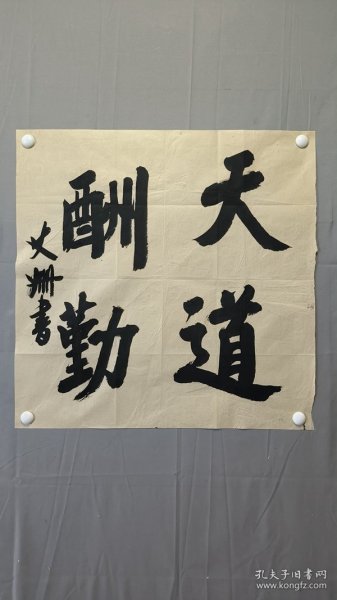 天道
酬勤
书
孔夫子旧书网
www.kongfz.com